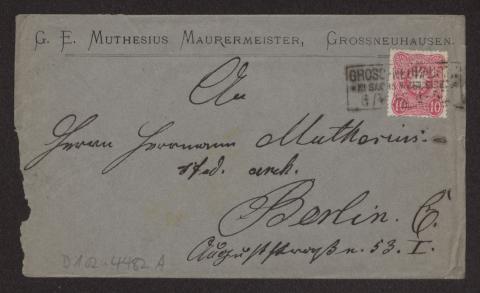 G. E. Muthesius Maurermeister, Grossneuhausen.
10 10
An
Herrn Herrmann Muthesius.
stud. arch.
Berlin. C.
Auguststraße. 53. I.
D 102-4482 A